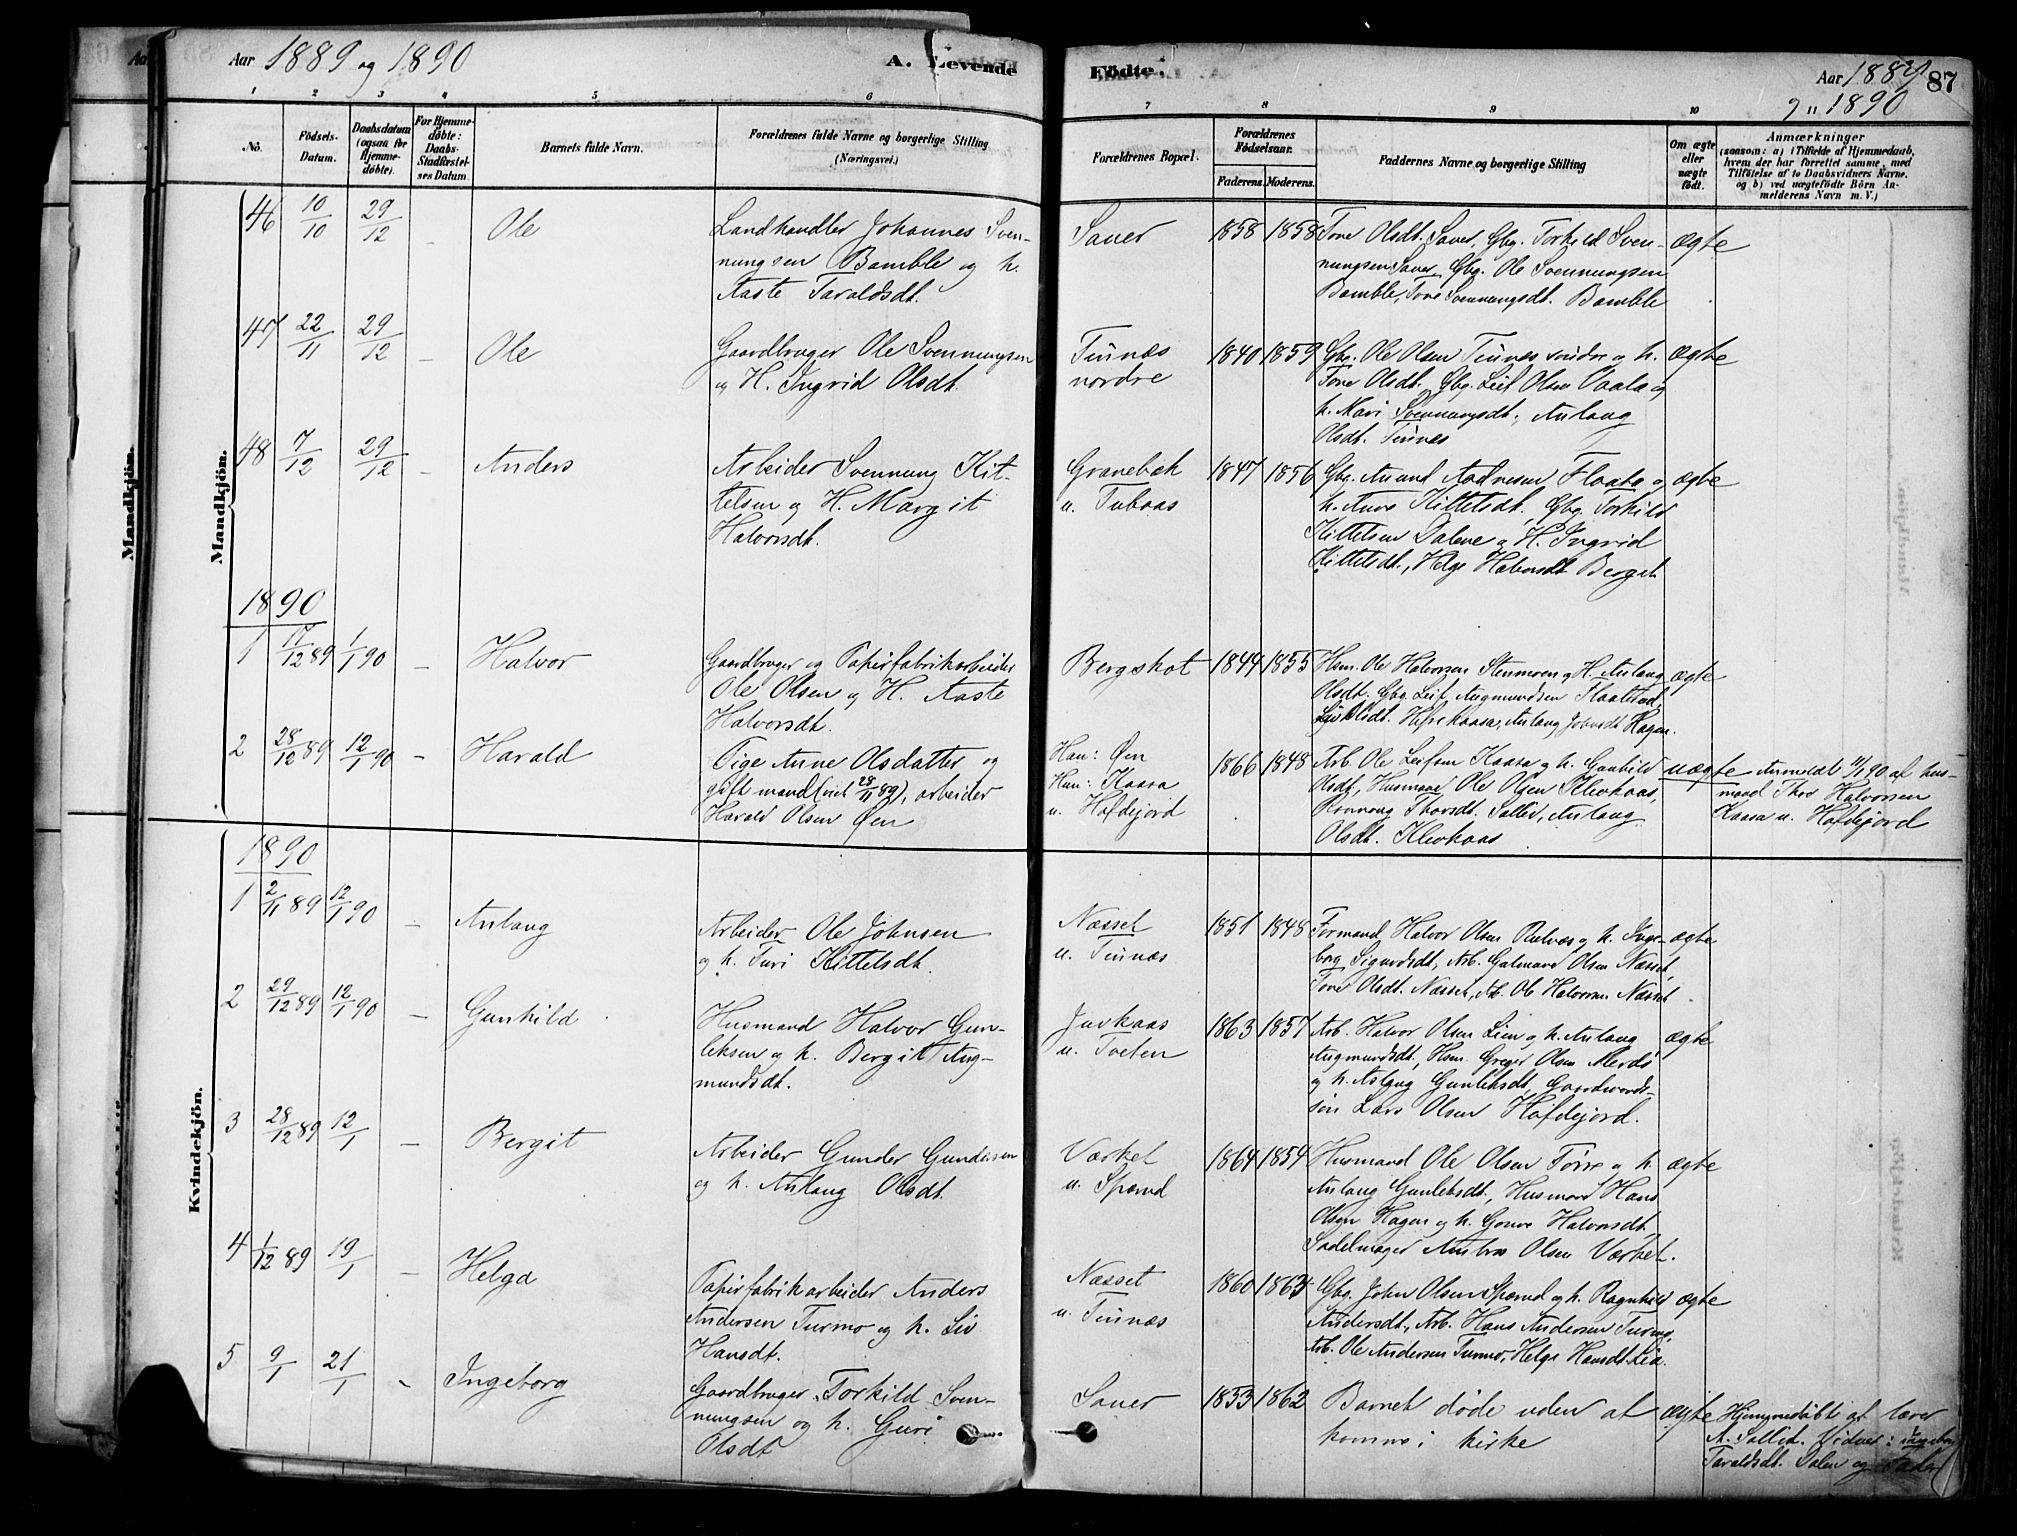 Aar 1889 og 1890
A. Levende
Födte.
Aar 1889 87
og 1890
1 2 3 4 5 6 7 8 9 10
No.
Födsels-
Datum.
Daabsdatum
(ogsaa for
Hjemme-
døbte).
For Hjemme-
døbte:
Daabs-
Stadfæstel-
ses Datum
Barnets fulde Navn.
Forældrenes fulde Navne og borgerlige Stilling
(Næringsvei.)
Forældrenes Bopæl.
Forældrenes
Födselsaar.
Faderens. Moderens.
Faddernes Navne og borgerlige Stilling
Om ægte
eller
uægte
født.
Anmærkninger
(saasom: a) i Tilfælde af Hjemmedaab,
hvem der har forrettet samme, med
Tilföielse af to Daabsvidners Navne.
og b) ved uægtefödte Börn An-
melderens Navn m. V.)
Mandkjön.
Mandkjön.
46 10/10 29/12 - Ole
Landhandler Johannes Sven-
nungsen Bamble og h.
Aaste Taraldsdt.
Saner 1858 1858
Tone Olsdt. Saner, Gbg. Torkild Sven-
nungsen Saner, Gbg. Ole Svennungsen
Bamble, Tone Svennungsdt. Bamble
ægte
47 22/11 29/12 - Ole
Gaardbruger Ole Svennungsen
og H. Ingrid Olsdt.
Tinnæs
nordre
1840 1859
Gbg. Ole Olsen Tinnes søndre og h.
Tone Olsdt. Gbg. Leif Olsen Vaala og
h. Mari Svennungsdt., Anlaug
Olsdt. Tinnes
ægte
48 7/12 29/12 - Anders
Arbeider Svennung Kit-
telsen og H. Margit
Halvorsdt.
Granebæk
u. Tubaas
1847 1856
Gbg. Anund Aadnesen Flaata og
h. Anne Kittelsdt., Gbg. Torkild
Kittelsen Dalene og H. Ingrid
Kittelsdt., Helge Halvorsdt Berget
ægte
1890
1 17/12 89 1/1 90 - Halvor
Gaardbruger og Papirfabrikarbeider
Ole Olsen og H. Aaste
Halvorsdt.
Bergskot 1844 1855
Hsm. Ole Halvorsen Stenmoen og H. Anlaug
Olsdt. Gbg. Leif Augmundsen Flaatstad,
Kaasa, Anlaug Johnsdt Hagen.
ægte
2 28/12 89 12/1 90 - Harald
Pige Anne Olsdatter og
gift mand (viet 28/11 89), arbeider
Harald Olsen Øen
Han: Øen
Hun: Kaasa
u. Hofdejord
1866 1848
Arb. Ole Leifsen Kaasa og h. Gunhild
Olsdt., Husmand Ole Olsen Klevkaas,
Ronnoug Thorsdt. Sollid, Anlaug
Olsdt. Klevkaas
uægte
Anmeldt 11/1 90 af hus-
mand Thor Halvorsen
Kaasa u. Hofdejord
Kvindekjön.
1890
1 2/11 89 12/1 90 - Anlaug
Arbeider Ole Johnsen
og h. Turi Kittelsdt.
Næsset
u. Tinnæs
1851 1848
Formand Halvor Olsen Rulnæs og h. Inge-
borg Sigurdsdt., Arb. Halvord Olsen Næsset,
Tone Olsdt. Næsset, Arb. Ole Halvorsen Næsset
ægte
2 29/12 89 12/1 90 - Gunhild
Husmand Halvor Gun-
leksen og h. Bergit Aug-
mundsdt.
Juvkaas
u. Tveten
1863 1857
Arb. Halvor Olsen Lien og h. Anlaug
Augmundsdt., Hsm. Greger Olsen
og h. Aslaug Gunleksdt., Gaardmands-
søn Lars Olsen Hofdejord.
ægte
3 28/12 89 12/1 - Bergit
Arbeider Gunder Gundersen
og h. Anlaug Olsdt.
Værket
u. Spærud
1864 1854
Husmand Ole Olsen Tørre og h.
Anlaug Gunleksdt., Husmand Hans
Olsen Hagen og h. Gonve Halvorsdt.,
Sadelmager Anders Olsen Værket.
ægte
4 1/12 89 19/1 - Helga
Papirfabrikarbeider Anders
Andersen Turmo og h. Liv
Hansdt.
Næsset
u. Tinnæs
1860 1863
Gbg. John Olsen Spærud og h. Ragnhild
Andersdt., Arb. Hans Andersen Turmo,
Arb. Ole Andersen Turmo, Helge Hansdt. Lia.
ægte
5 9/1 21/1 - Ingeborg
Gaardbruger Torkild Sven-
nungsen og h. Guri
Olsdt
Saner 1853 1862
Barnet døde uden at
komme i kirke
ægte
Hjemmedøbt af lærer
A. Sollid. Vidner: Ingeborg
Taraldsdt. Dalen og Fader